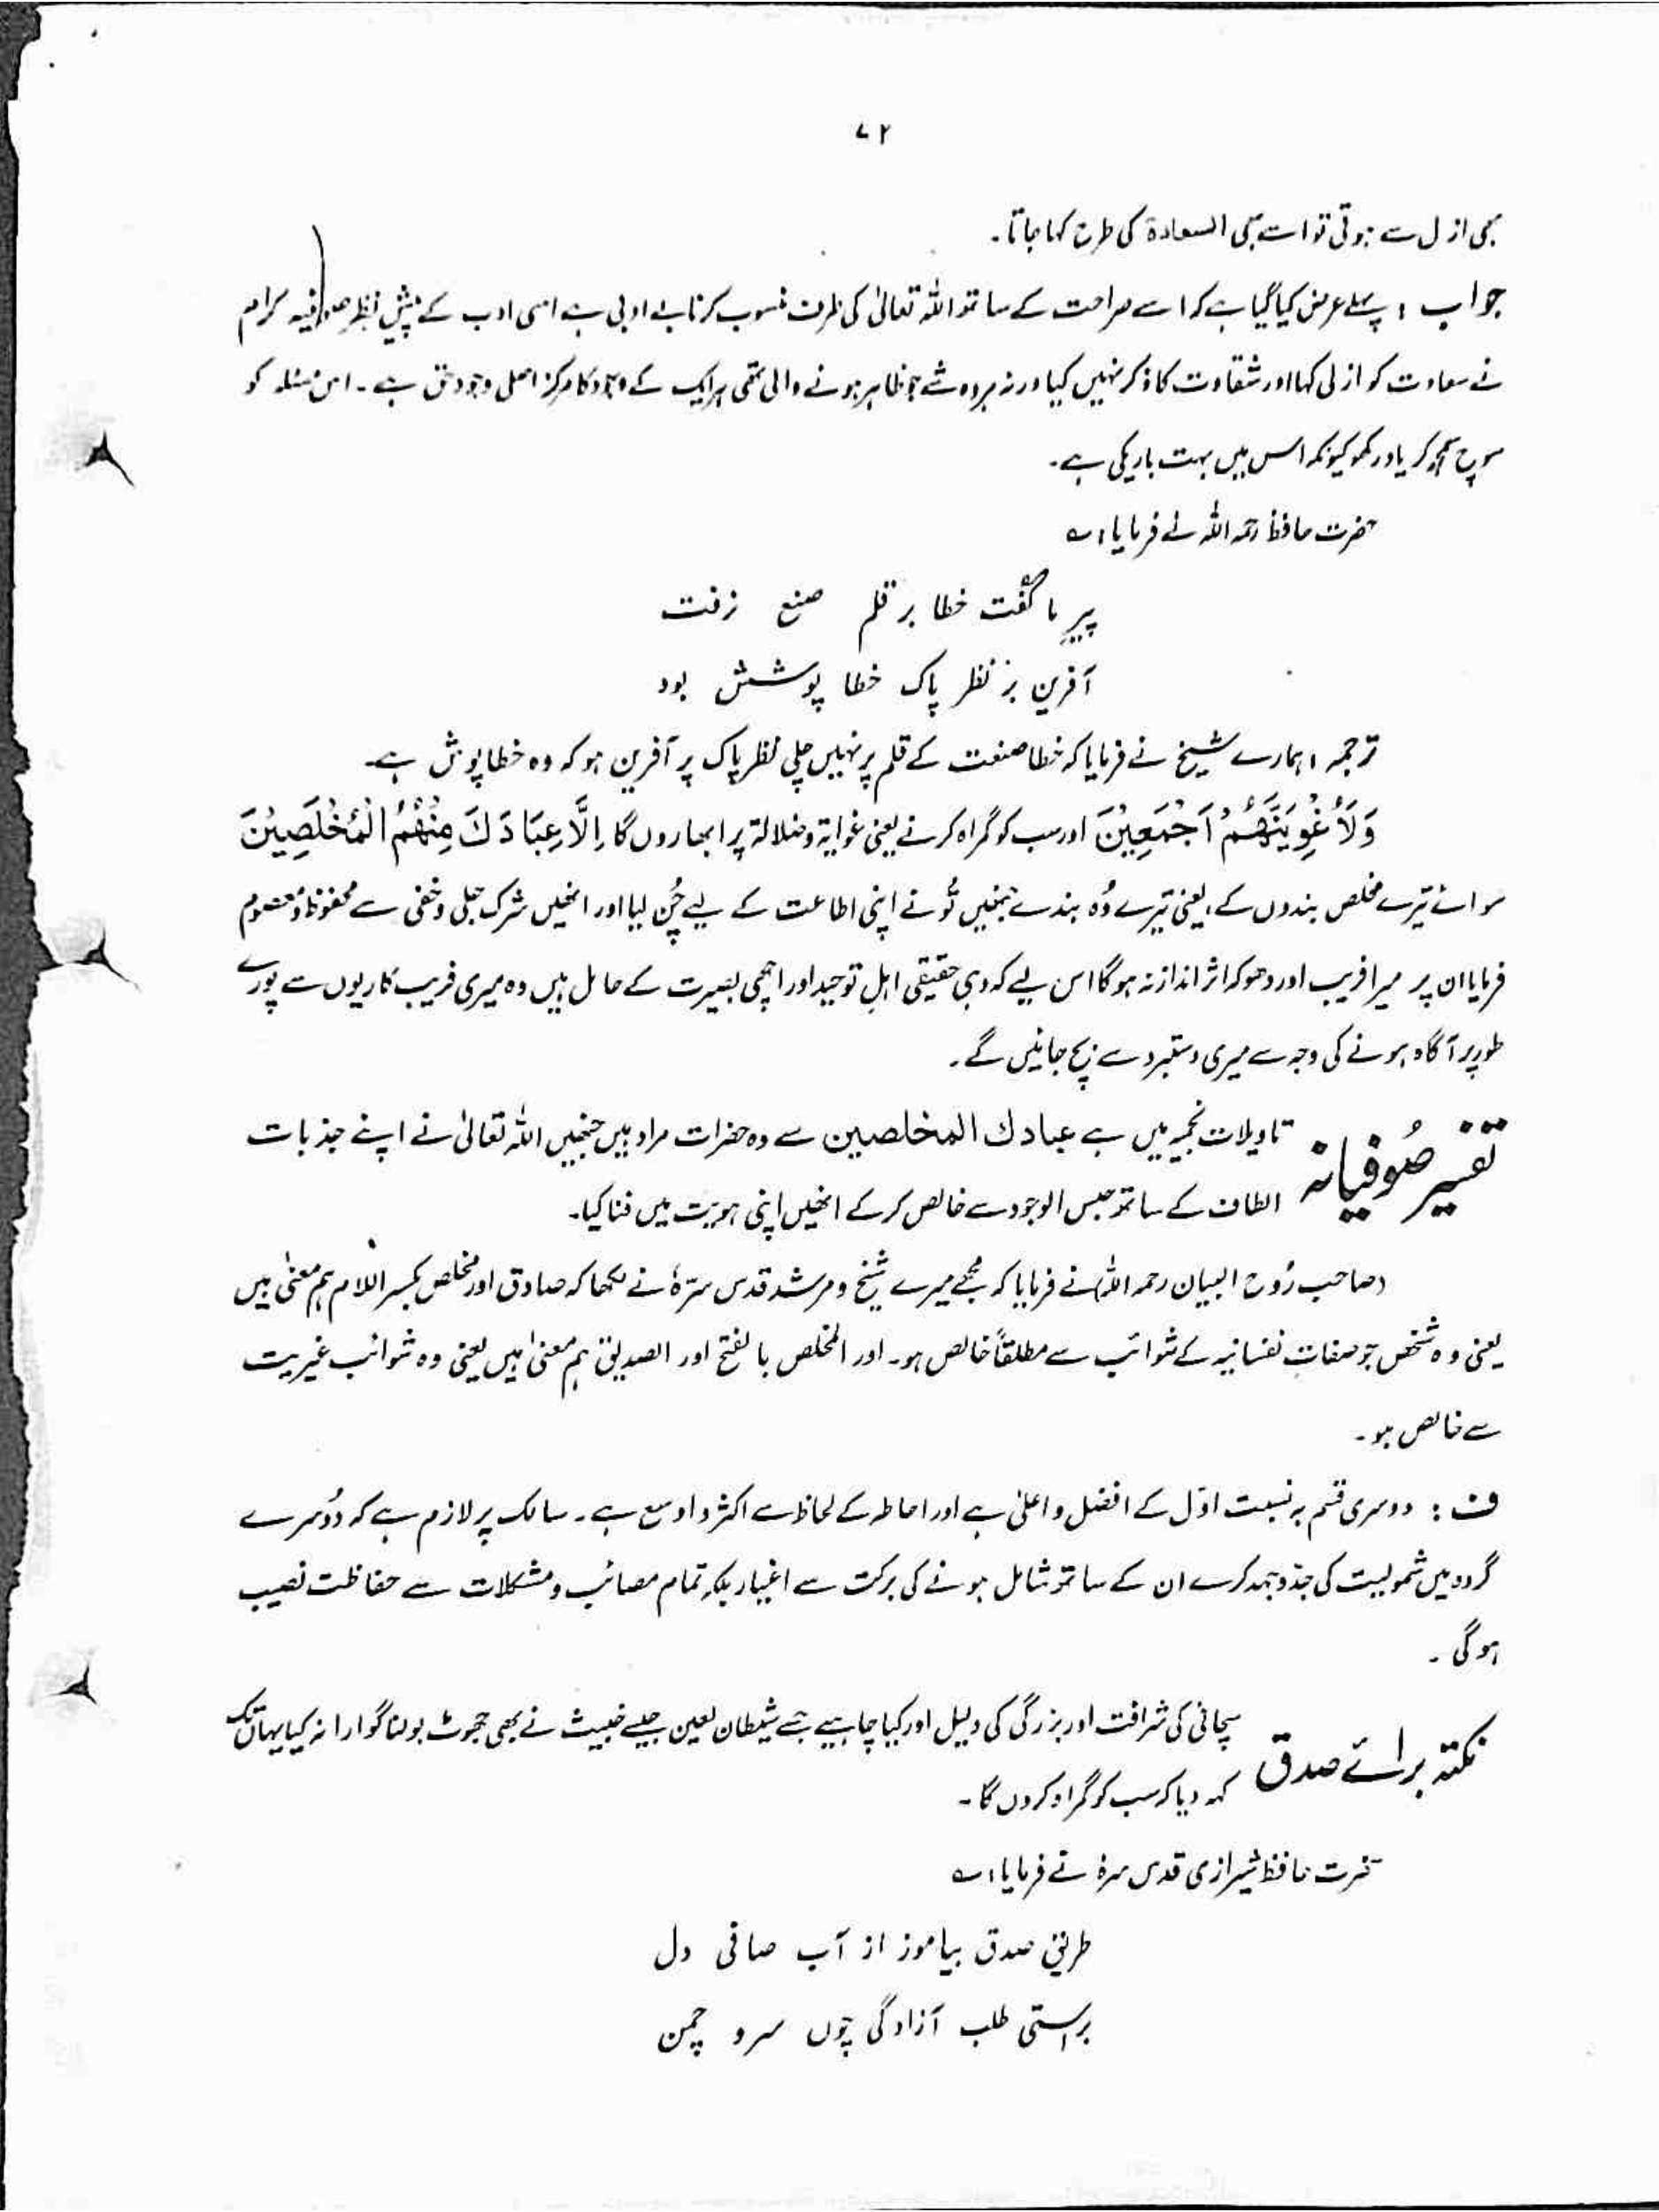 ۷۲
بھی ازل سے ہوتی تو اسے بھی السعادة کی طرح کہا جاتا۔
جواب : پہلے عرض کیا گیا ہے کہ اسے صراحت کے ساتھ اللہ تعالیٰ کی طرف منسوب کرنا بے ادبی ہے اسی ادب کے پیش نظر صوفیہ کرام
نے سعادت کو ازلی کہا اور شقاوت کا ذکر نہیں کیا ورنہ ہر وہ شے جو ظاہر ہونے والی تھی ہر ایک کے وجود کا مرکز اصلی وجود حق ہے ۔ اس مسئلہ کو
سوچ سمجھ کر یاد رکھو کیونکہ اس میں بہت باریکی ہے۔
حضرت حافظ رحمہ اللہ نے فرمایا : ؎
پیرِ ما گفت خطا بر قلم صنع نرفت
آفرین بر نظر پاک خطا پوشش بود
ترجمہ : ہمارے شیخ نے فرمایا کہ خطا صنعت کے قلم پر نہیں چلی نظر پاک پر آفرین ہو کہ وہ خطا پوش ہے۔
وَلَأُغْوِيَنَّهُمْ اَجْمَعِيْنَ اور سب کو گمراہ کرنے یعنی غوایة و ضلالة پر ابھاروں گا اِلَّا عِبَادَكَ مِنْهُمُ الْمُخْلَصِيْنَ
سوائے تیرے مخلص بندوں کے، یعنی تیرے وُہ بندے جنھیں تُو نے اپنی اطاعت کے لیے چُن لیا اور انھیں شرک جلی و خفی سے محفوظ و معصوم
فرمایا ان پر میرا فریب اور دھوکہ اثر انداز نہ ہوگا اس لیے کہ وہی حقیقی اہلِ توحید اور اچھی بصیرت کے حامل ہیں وہ میری فریب کاریوں سے پورے
طور پر آگاہ ہونے کی وجہ سے میری دستبرد سے بچ جائیں گے ۔
تفسیر صُوفیانہ تاویلات نجمیہ میں ہے عبادك المخلصين سے وہ حضرات مراد ہیں جنھیں اللہ تعالیٰ نے اپنے جذبات
الطاف کے ساتھ حبس الوجود سے خالص کر کے انھیں اپنی ہویت میں فنا کیا۔
(صاحب رُوح البیان رحمہ اللہ) نے فرمایا کہ مجھے میرے شیخ و مرشد قدس سرّہٗ نے لکھا کہ صادق اور مخلص بکسر اللام ہم معنیٰ ہیں
یعنی وہ شخص جو صفاتِ نفسانیہ کے شوائب سے مطلقاً خالص ہو۔ اور المخلص بالفتح اور الصدیق ہم معنیٰ ہیں یعنی وہ شوائب غیریت
سے خالص ہو ۔
ف : دوسری قسم بہ نسبت اوّل کے افضل و اعلیٰ ہے اور احاطہ کے لحاظ سے اکثر و اوسع ہے ۔ سالک پر لازم ہے کہ دُوسرے
گروہ میں شمولیت کی جدّوجہد کرے ان کے ساتھ شامل ہونے کی برکت سے اغیار بلکہ تمام مصائب و مشکلات سے حفاظت نصیب
ہوگی ۔
نکتہ برائے صدق سچائی کی شرافت اور بزرگی کی دلیل اور کیا چاہیے جسے شیطان لعین جیسے خبیث نے بھی جھوٹ بولنا گوارا نہ کیا یہاں تک
کہہ دیا کہ سب کو گمراہ کروں گا ۔
حضرت حافظ شیرازی قدس سرہٗ نے فرمایا : ؎
طریق صدق بیاموز از آب صافی دل
براستی طلب آزادگی چوں سرو چمن